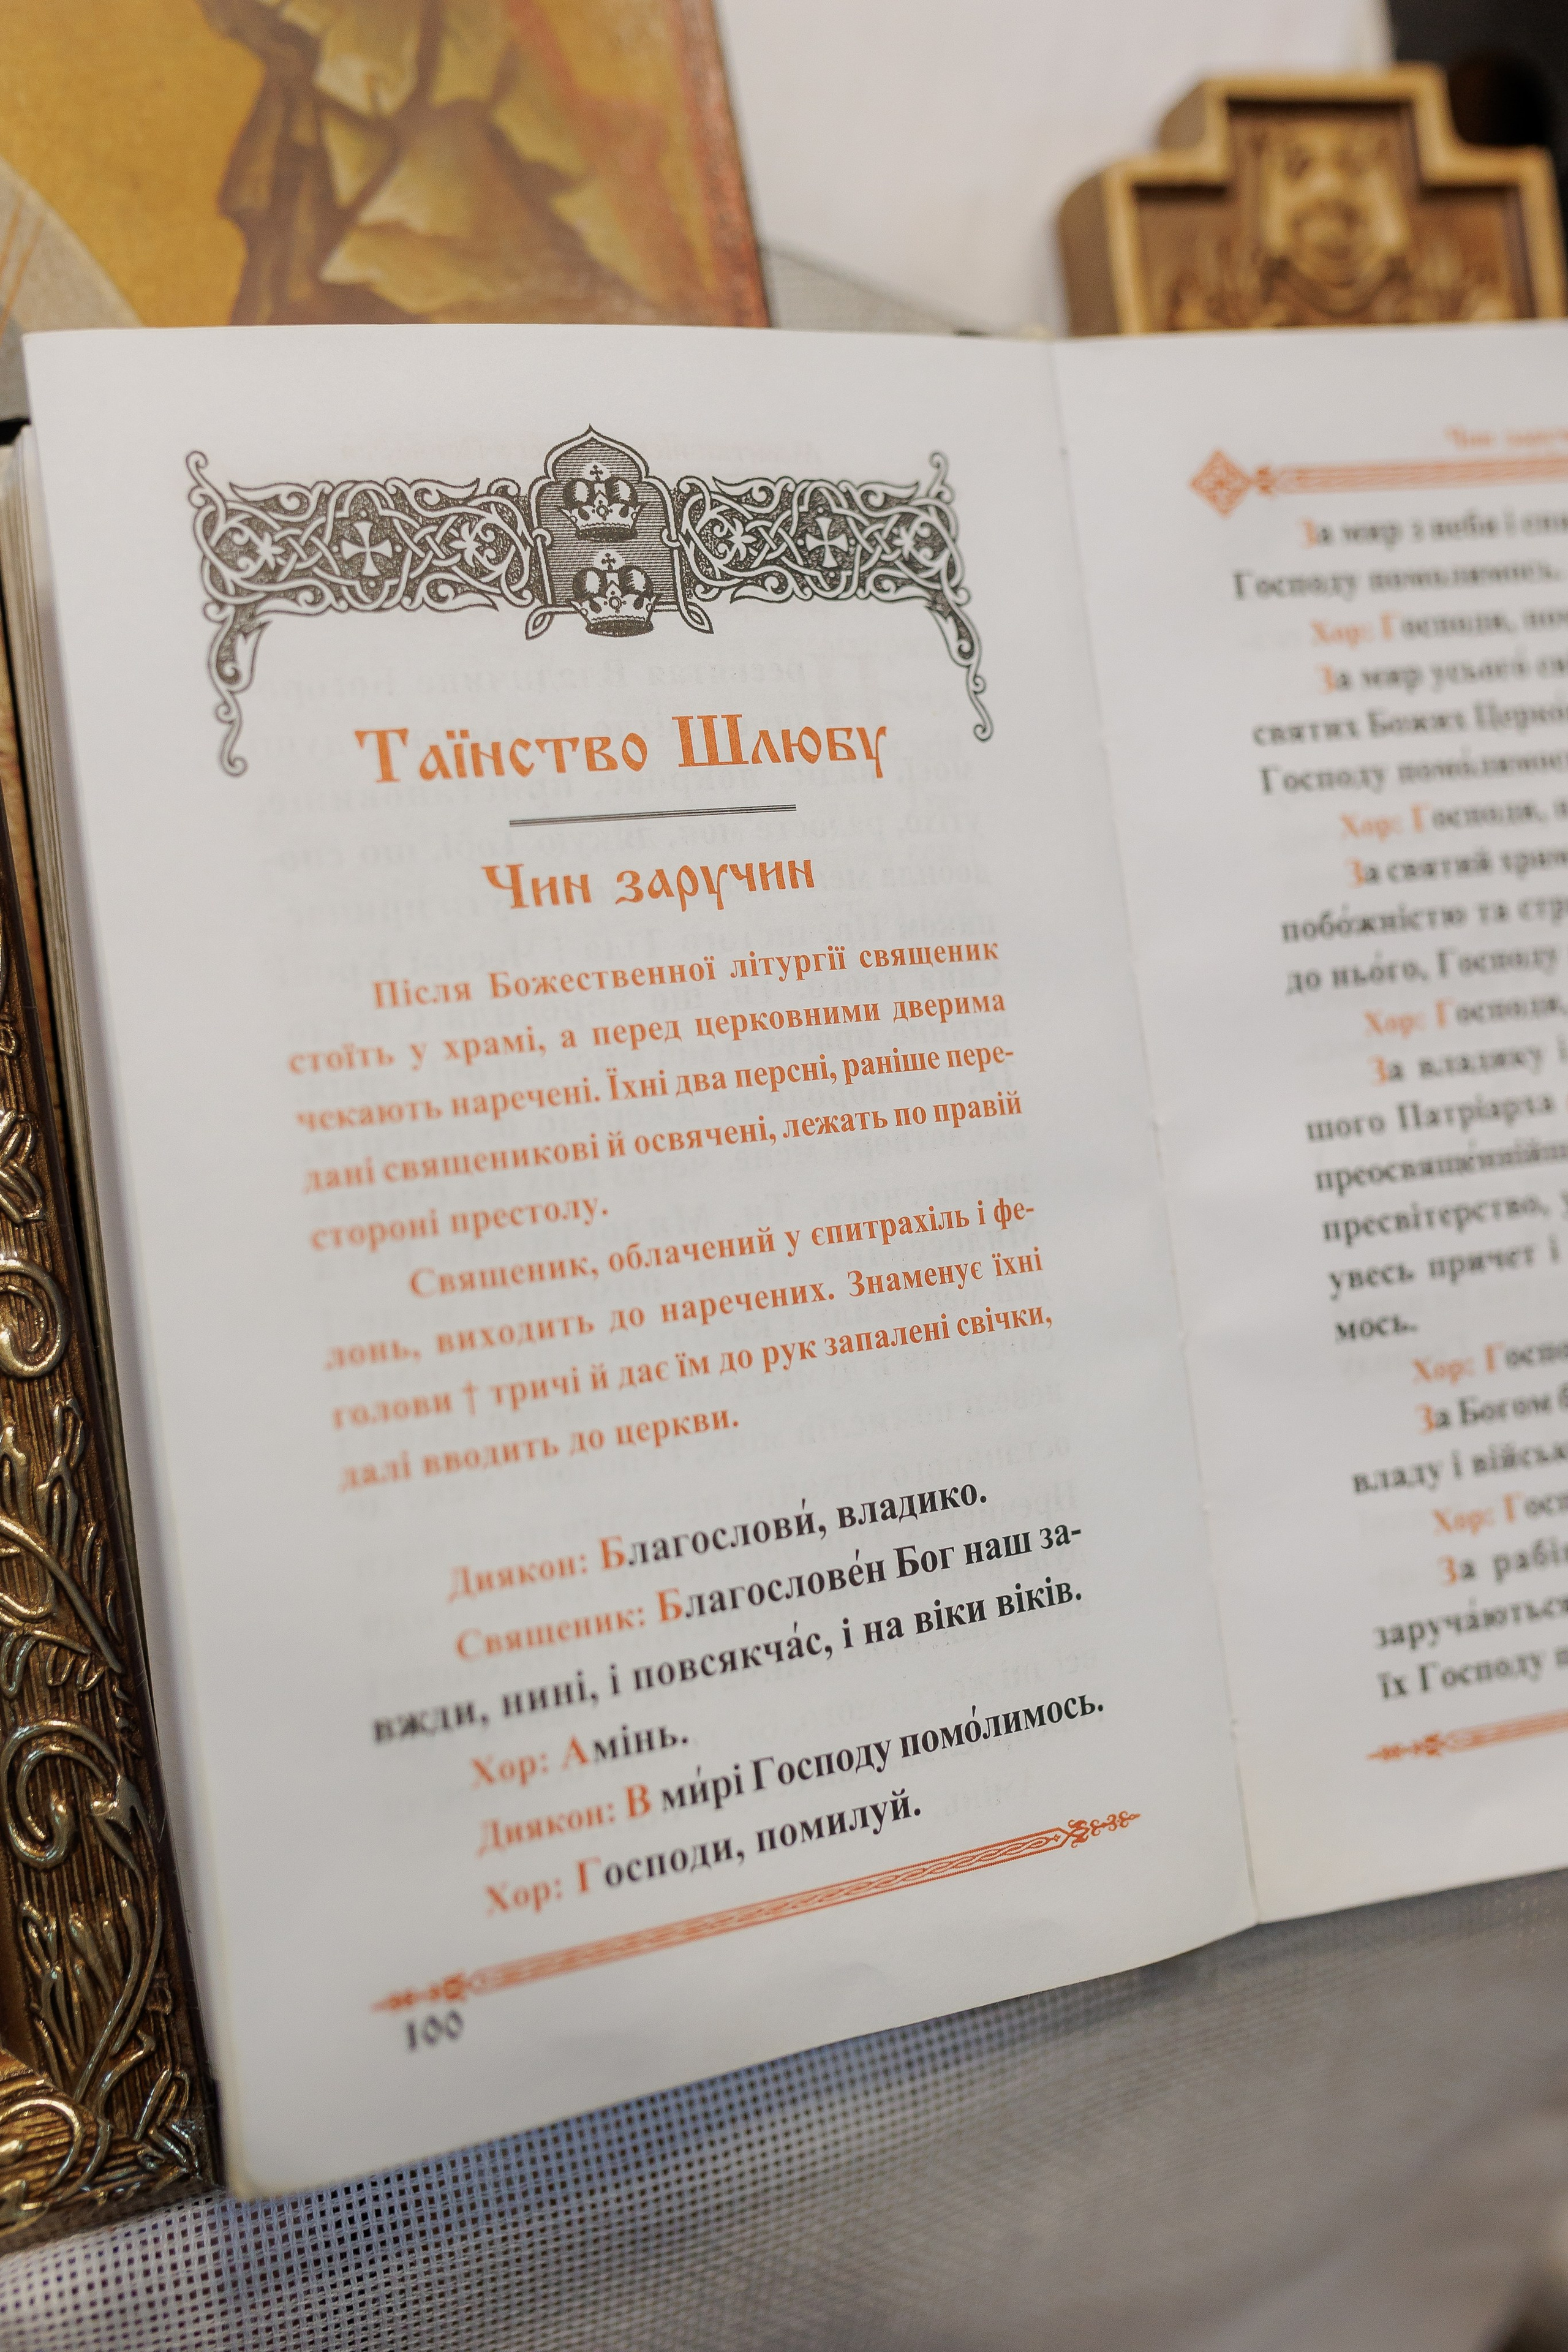 Таїнство Шлюбу
Чин заручин
Після Божественної літургії священик
стоїть у храмі, а перед церковними дверима
чекають наречені. Їхні два персні, раніше пере-
дані священикові й освячені, лежать по правій
стороні престолу.
Священик, облачений у єпитрахіль і фе-
лонь, виходить до наречених. Знаменує їхні
голови † тричі й дає їм до рук запалені свічки,
далі вводить до церкви.
Диякон: Благослови́, владико.
Священик: Благослове́н Бог наш за-
вжди, нині, і повсякча́с, і на віки віків.
Хор: Амінь.
Диякон: В ми́рі Господу помо́лимось.
Хор: Господи, помилуй.
100
Чин
За мир з неба і
Господу помолимось.
Хор: Господи,
За мир усього
святих Божих
Господу помо́лимось
Хор: Господи,
За святий храм
побо́жністю та
до ньо́го, Господу
Хор: Господи,
За владику і
шого Патріарха
пресвітерство,
увесь причет і
мось.
Хор:
За Богом
владу і
Хор:
За рабів
заруча́ються
їх Господу